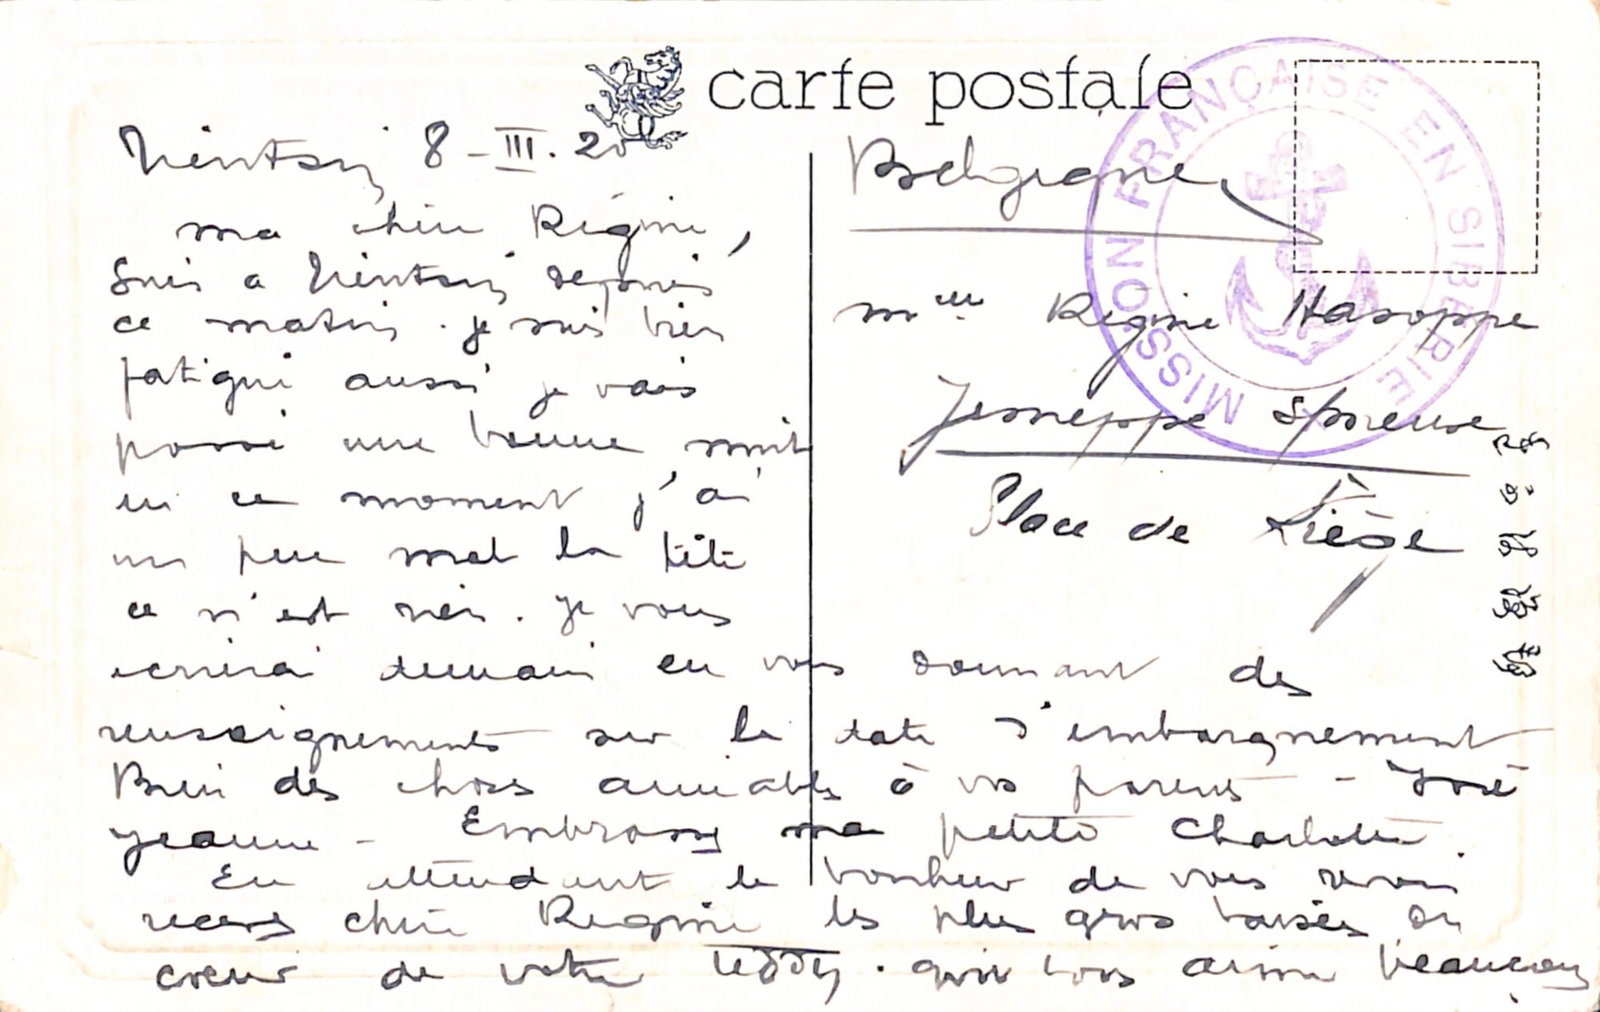 carte postale
MISSION FRANÇAISE EN SIBERIE
Tientsin 8-III.20
ma chère Régine,
Suis a Tientsin depuis
ce matin. je suis bien
fatigué aussi je vais
passé une bonne nuit
en ce moment j'ai
un peu mal la tête
ce n'est rien. Je vous
écrirai demain en vous donnant des
renseignements sur la date d'embarquement
Bien des choses aimables à vos parents - José
Jeanne - Embrassez ma petite Charlotte.
En attendant le bonheur de vous revoir
recevez chère Régine les plus gros baisers du
coeur de votre Teddy. qui vous aime beaucoup
Belgique
Melle Régine Hasoppe
Jemeppe s/meuse
Place de Liège